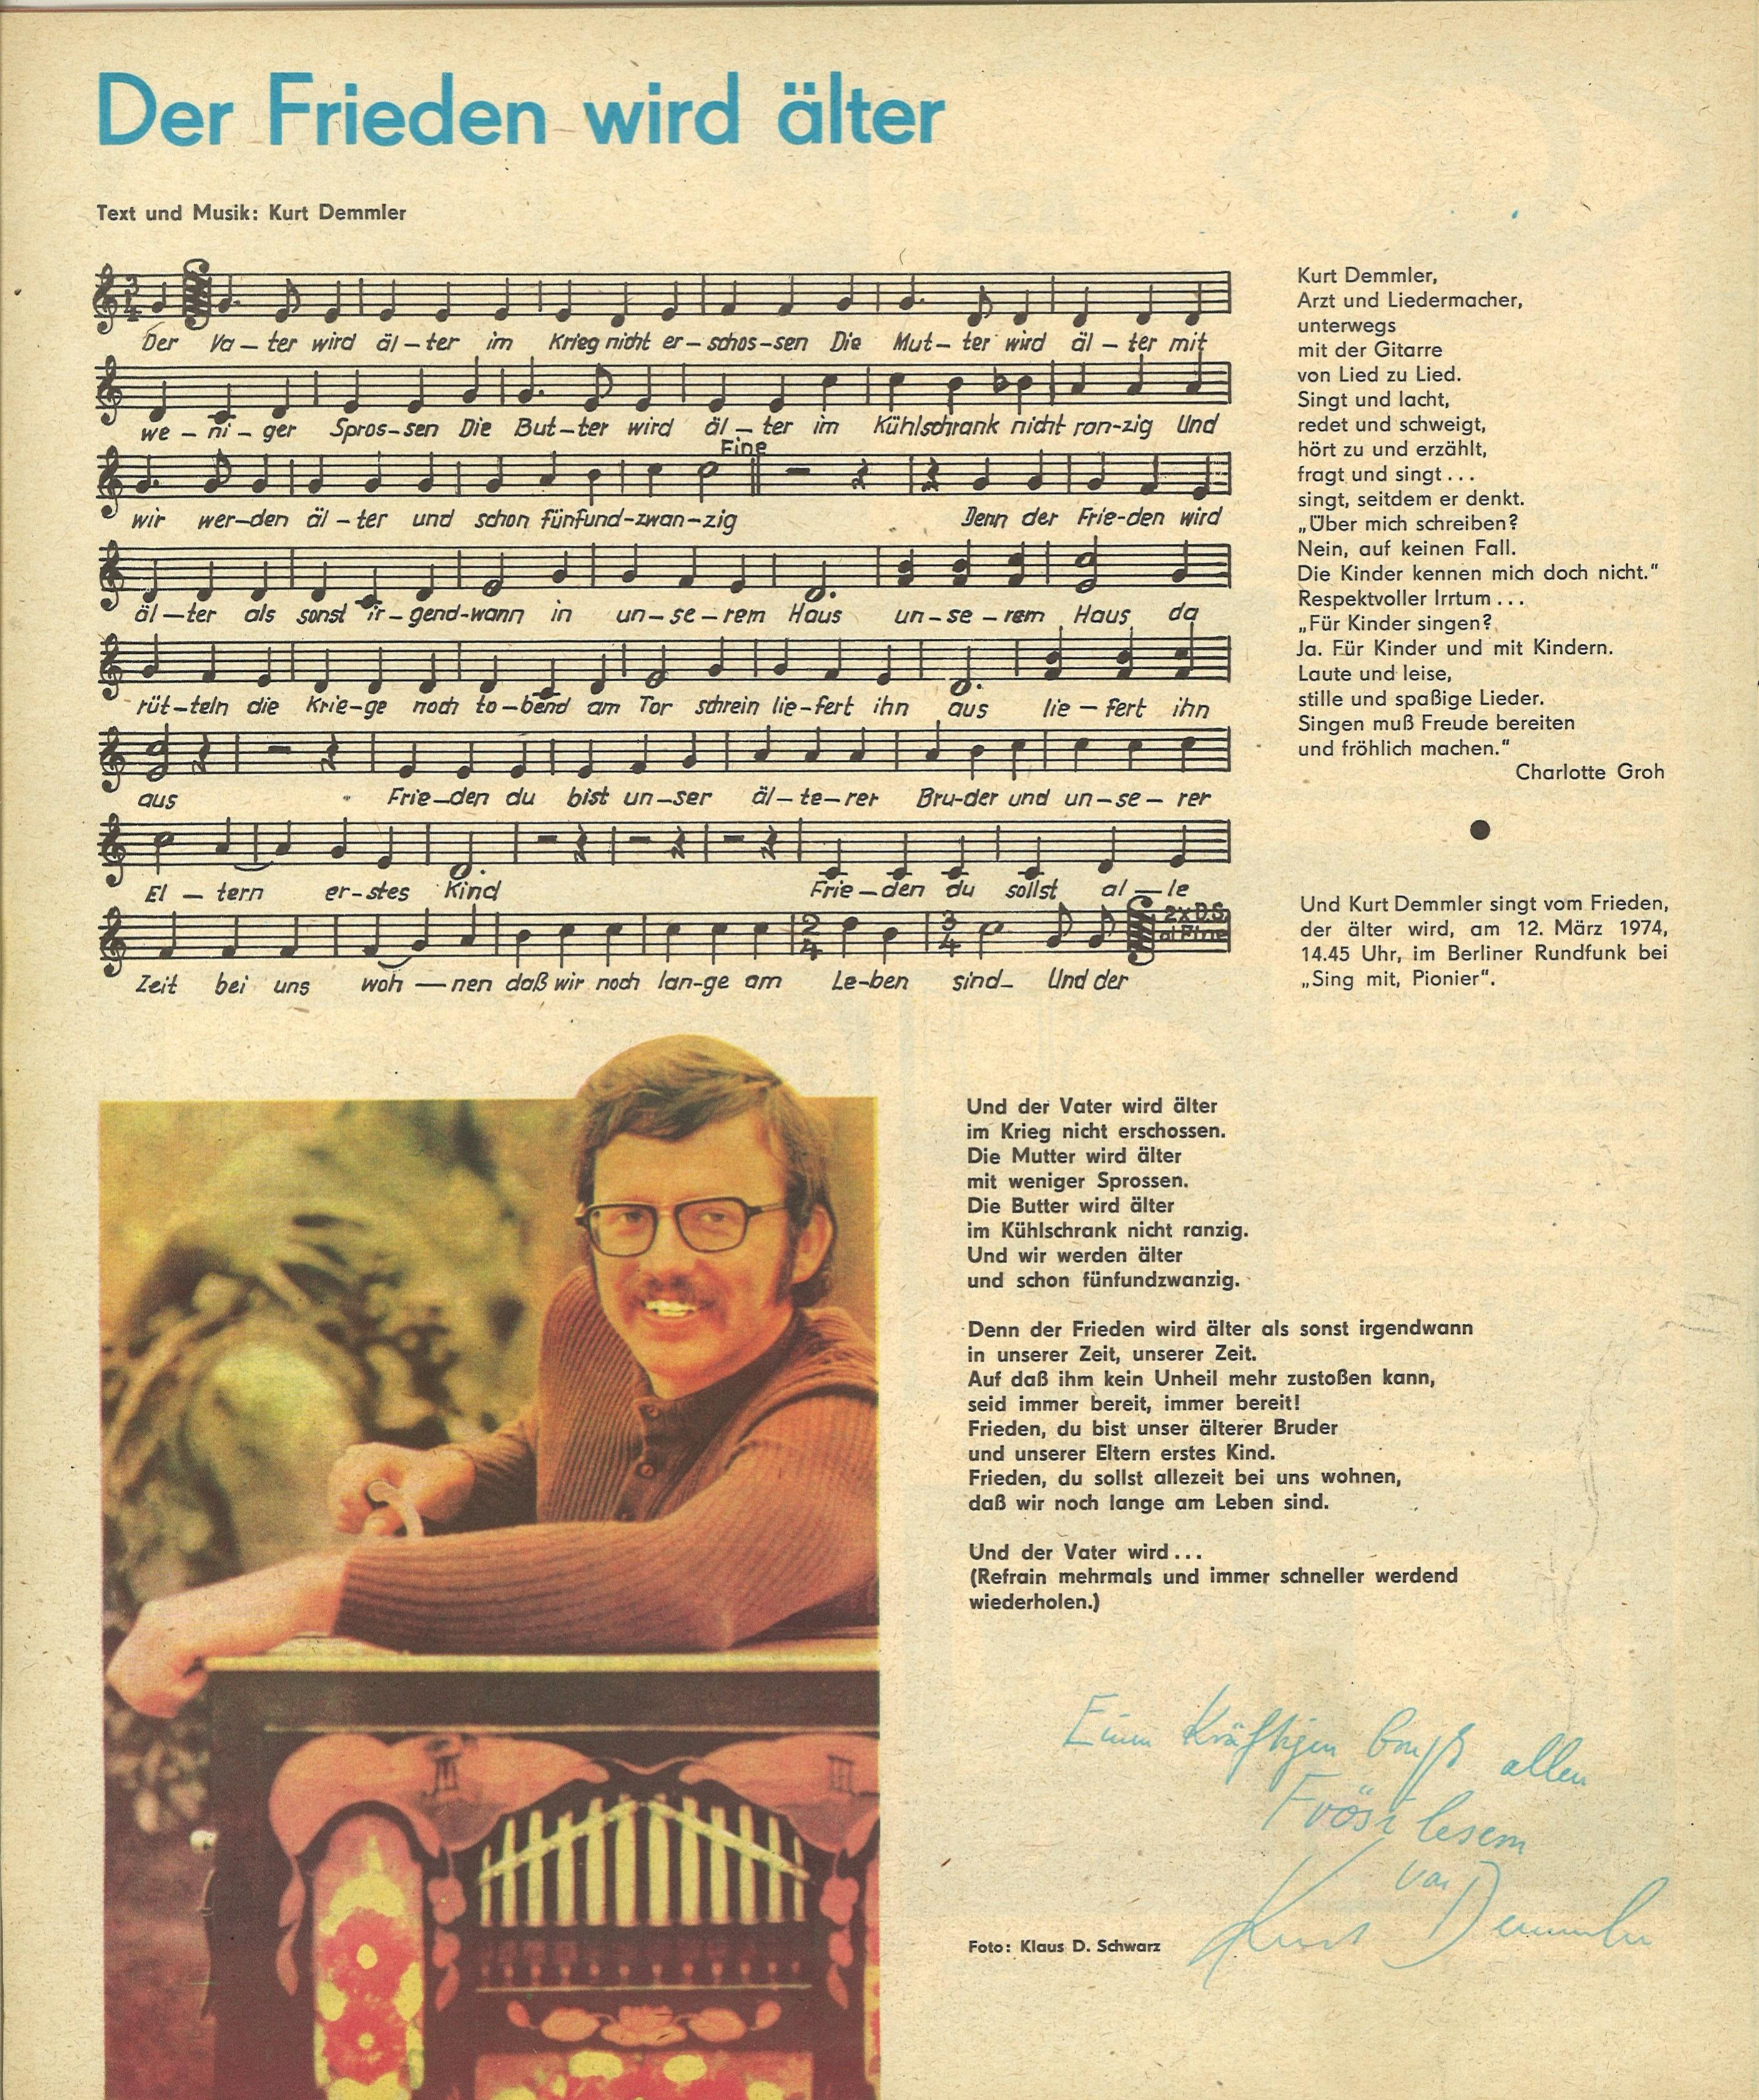 Der Frieden wird älter
Text und Musik: Kurt Demmler
3 4
Der Va – ter wird äl – ter im Krieg nicht er – schos – sen Die Mut – ter wird äl – ter mit
we – ni – ger Spros – sen Die But – ter wird äl – ter im Kühlschrank nicht ran – zig Und
Fine
wir wer – den äl – ter und schon fünfund – zwan – zig Denn der Frie – den wird
äl – ter als sonst ir – gend – wann in un – se – rem Haus un – se – rem Haus da
rüt – teln die Krie – ge noch to – bend am Tor schrein lie – fert ihn aus lie – fert ihn
aus Frie – den du bist un – ser äl – te – rer Bru – der und un – se – rer
El – tern er – stes Kind Frie – den du sollst al – le
2 4 3 4 2x D.S. al Fine
Zeit bei uns woh – nen daß wir noch lan – ge am Le – ben sind_ Und der
Kurt Demmler,
Arzt und Liedermacher,
unterwegs
mit der Gitarre
von Lied zu Lied.
Singt und lacht,
redet und schweigt,
hört zu und erzählt,
fragt und singt . . .
singt, seitdem er denkt.
„Über mich schreiben?
Nein, auf keinen Fall.
Die Kinder kennen mich doch nicht.“
Respektvoller Irrtum . . .
„Für Kinder singen?
Ja. Für Kinder und mit Kindern.
Laute und leise,
stille und spaßige Lieder.
Singen muß Freude bereiten
und fröhlich machen.“
Charlotte Groh
Und Kurt Demmler singt vom Frieden,
der älter wird, am 12. März 1974,
14.45 Uhr, im Berliner Rundfunk bei
„Sing mit, Pionier“.
Und der Vater wird älter
im Krieg nicht erschossen.
Die Mutter wird älter
mit weniger Sprossen.
Die Butter wird älter
im Kühlschrank nicht ranzig.
Und wir werden älter
und schon fünfundzwanzig.
Denn der Frieden wird älter als sonst irgendwann
in unserer Zeit, unserer Zeit.
Auf daß ihm kein Unheil mehr zustoßen kann,
seid immer bereit, immer bereit!
Frieden, du bist unser älterer Bruder
und unserer Eltern erstes Kind.
Frieden, du sollst allezeit bei uns wohnen,
daß wir noch lange am Leben sind.
Und der Vater wird . . .
(Refrain mehrmals und immer schneller werdend
wiederholen.)
Einen kräftigen allen
Frösi lesern
von
Kurt Demmler
Foto: Klaus D. Schwarz